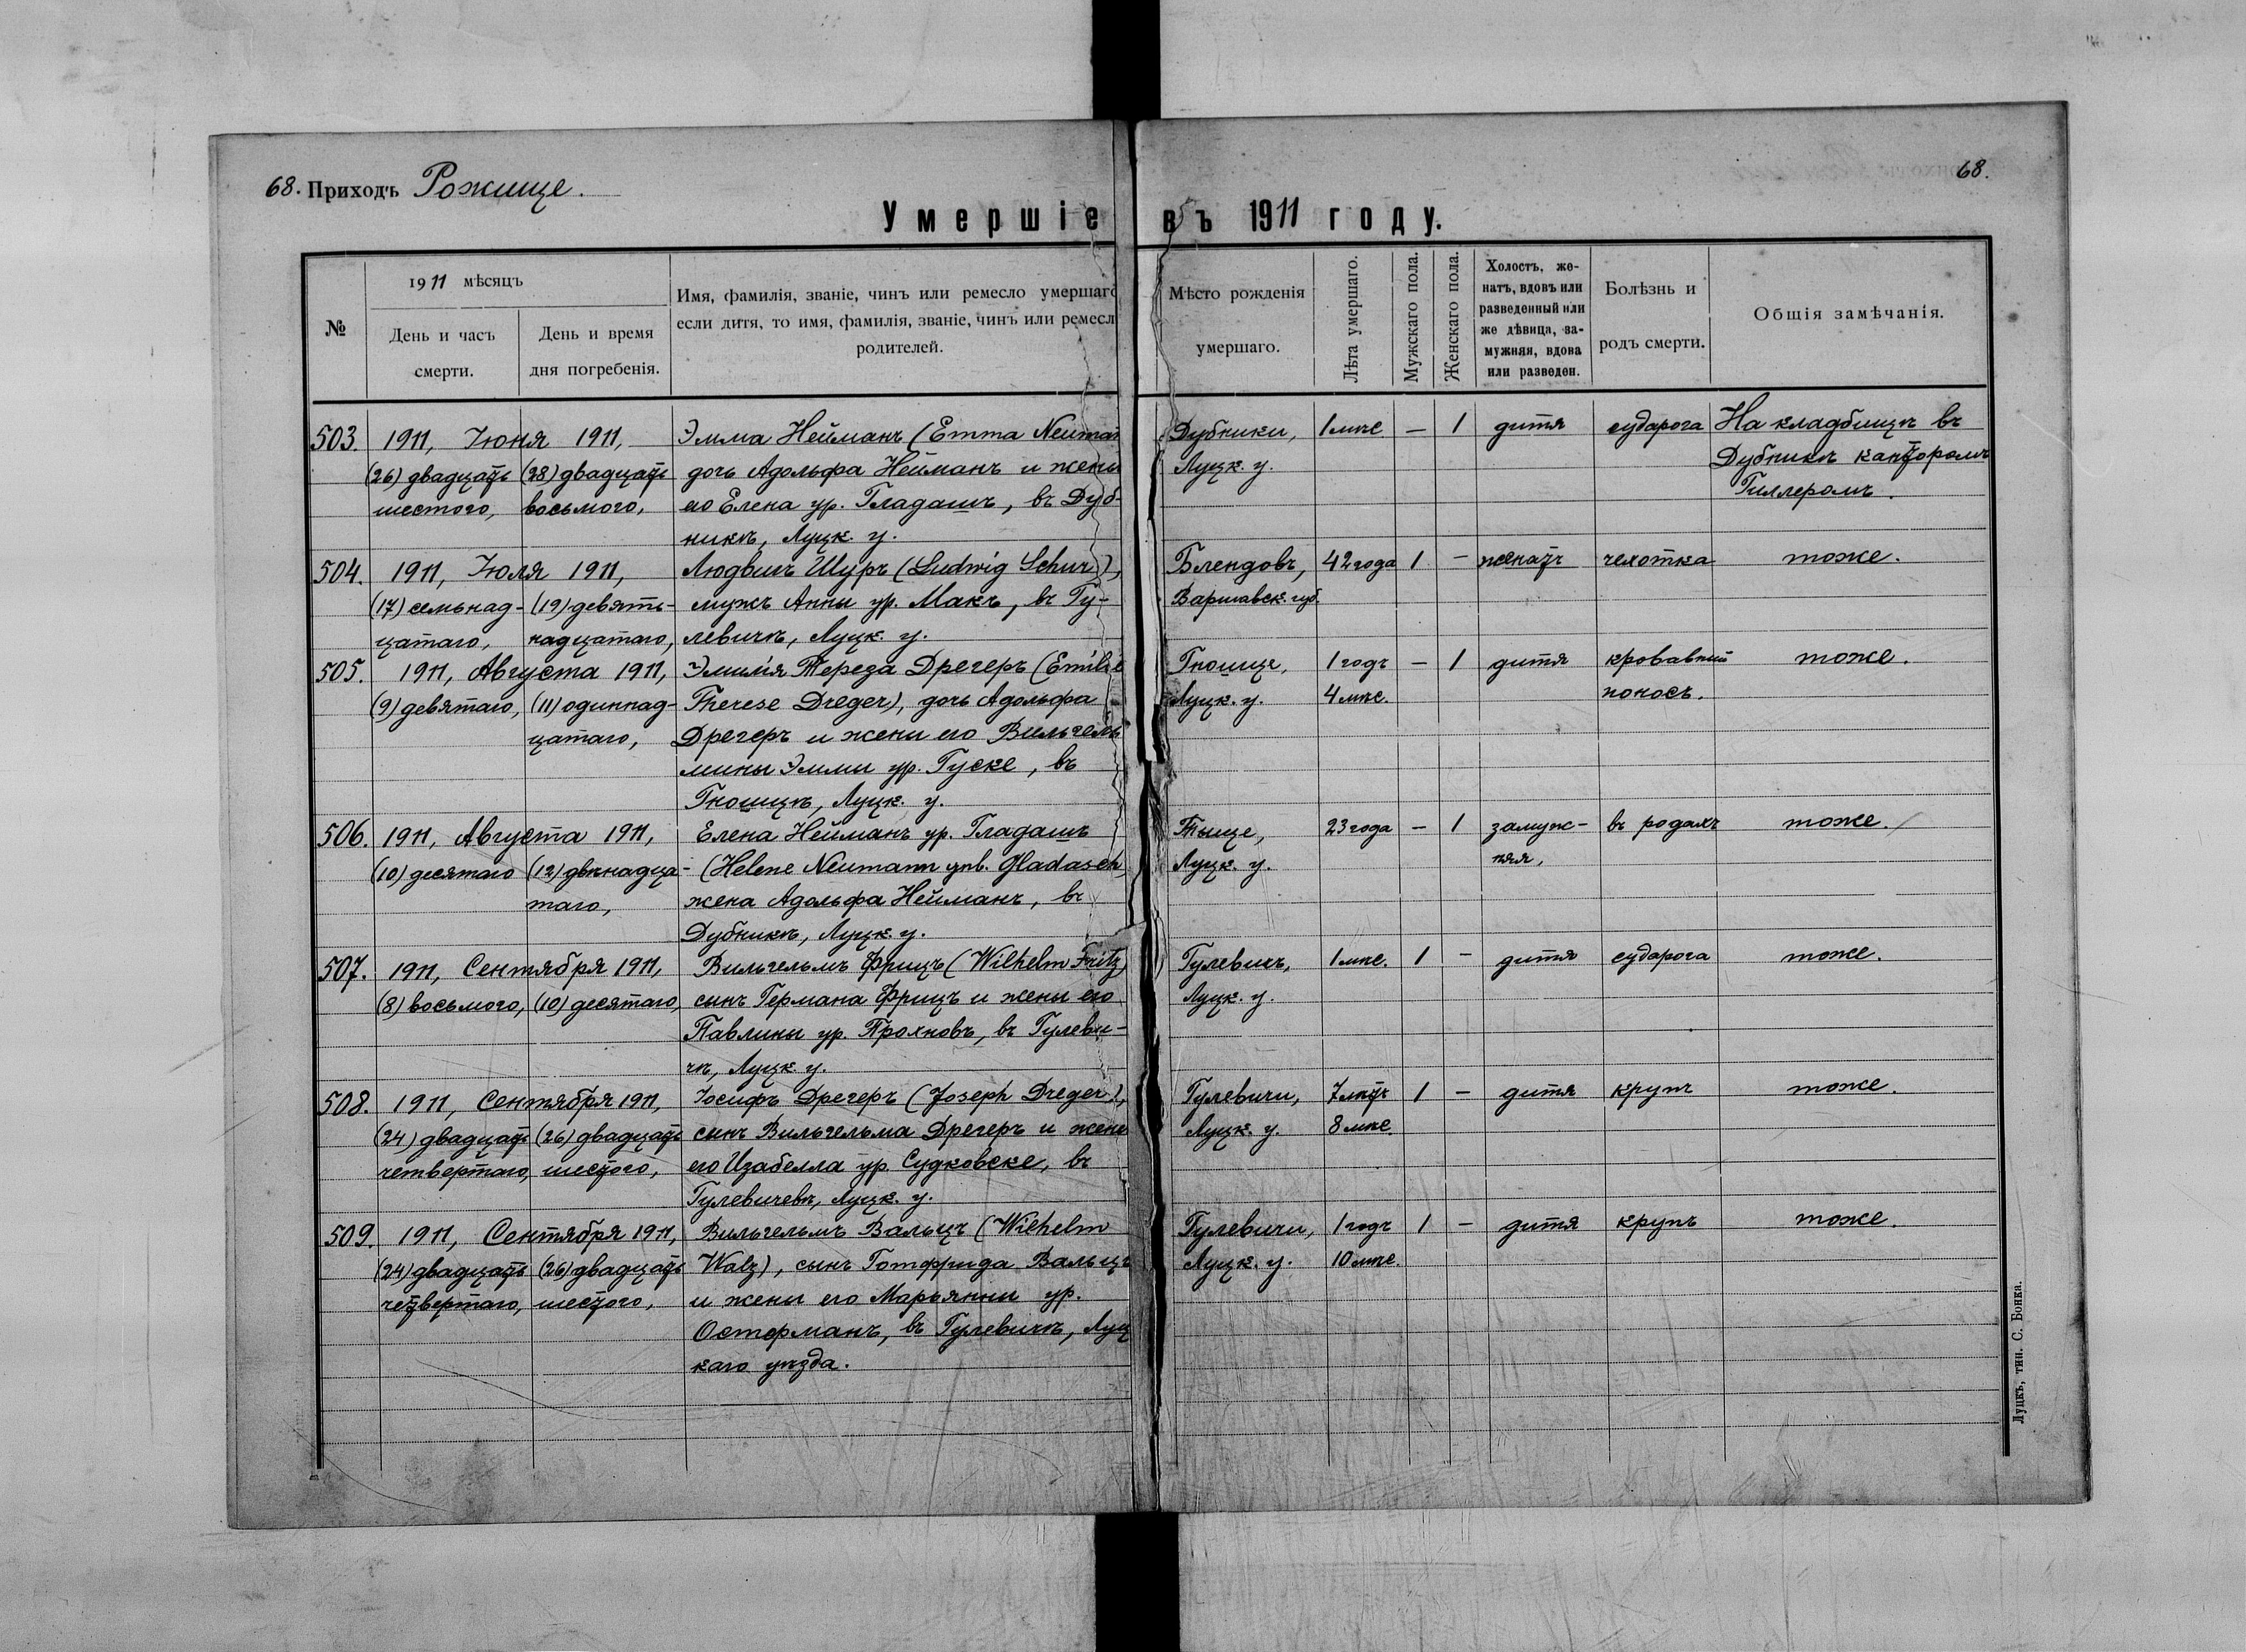 68. Приходъ Рожище.
68.
Умершіе въ 1911 году.
№
1911 мѣсяцъ
День и часъ смерти.
День и время дня погребенія.
Имя, фамилія, званіе, чинъ или ремесло умершаго
если дитя, то имя, фамилія, званіе, чинъ или ремесл
родителей.
Мѣсто рожденія умершаго.
Лѣта умершаго.
Мужскаго пола.
Женскаго пола.
Холостъ, же-
натъ, вдовъ или
разведенный или
же дѣвица, за-
мужняя, вдова
или разведен.
Болѣзнь и родъ смерти.
Общія замѣчанія.
503. 1911, Іюня 1911, Эмма Нейманъ (Emma Neuman Дубники, 1 мѣс. — 1 дитя судорога На кладбищѣ въ
(26) двадцать (28) двадцать дочь Адольфа Нейманъ и жены Луцк. у. Дубникѣ канторомъ
шестого, восьмого, его Елена ур. Гладашъ, въ Дуб- Гиллеромъ.
никѣ, Луцк. у.
504. 1911, Іюля 1911, Людвигъ Шуръ (Ludwig Schur), Блендовъ, 42 года 1 — женатъ чехотка тоже.
(17) семьнад- (19) девять- мужъ Анны ур. Макъ, въ Гу- Варшавск. губ.
цатаго, надцатаго, левичѣ, Луцк. у.
505. 1911, Августа 1911, Эмилія Тереза Дрегеръ (Emilie Гнощце, 1 годъ — 1 дитя кровавый тоже.
(9) девятаго, (11) одиннад- Therese Dreger), дочь Адольфа Луцк. у. 4 мѣс. поносъ.
цатаго, Дрегеръ и жены его Вильгель
мины Эммы ур. Гуске, въ
Гнощцѣ, Луцк. у.
506. 1911, Августа 1911, Елена Нейманъ ур. Гладашъ Тыще, 23 года — 1 замуж- въ родахъ тоже.
(10) десятаго (12) двѣнадца- (Helene Neumann gb. Gladasch) Луцк. у. няя,
таго, жена Адольфа Нейманъ, въ
Дубникѣ, Луцк. у.
507. 1911, Сентября 1911, Вильгельмъ Фрицъ (Wilhelm Fritz) Гулевичъ, 1 мѣс. 1 — дитя судорога тоже.
(8) восьмого, (10) десятаго, сынъ Германа Фрицъ и жены его Луцк. у.
Павлины ур. Прохновъ, въ Гулеви-
чѣ, Луцк. у.
508. 1911, Сентября 1911, Іосифъ Дрегеръ (Joseph Dreger), Гулевичи, 7 лѣтъ 1 — дитя крупъ тоже.
(24) двадцать (26) двадцать сынъ Вильгельма Дрегеръ и жены Луцк. у. 8 мѣс.
четвертаго, шестого, его Изабелла ур. Судковске, въ
Гулевичевѣ, Луцк. у.
509. 1911, Сентября 1911, Вильгельмъ Вальцъ (Wilhelm Гулевичи, 1 годъ 1 — дитя крупъ тоже.
(24) двадцать (26) двадцать Walz), сынъ Готфрида Вальцъ Луцк. у. 10 мѣс.
четвертаго, шестого, и жены его Марьянны ур.
Остерманъ, въ Гулевичѣ, Луц
каго уѣзда.
Луцкъ, тип. С. Бонка.